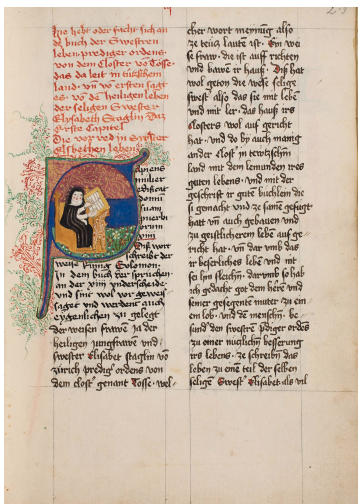 Hie hebt oder facht sich an
dz buch der Swestren
leben prediger ordens
von dem closter vo Tosse
das da leit in türkischem
land · vn̄ vo ersten sagt
es · vō der heiligen leben
der seligen Swester
Elysabeth Staglin Daz
erste Capitel ·
Die vor red in Swester
Elsbethen leben
Sapiens
mulier
edificat
domū
suam
puerbi
orum
xiiij
Diß wort
schreibet der
weise küng Solomon ·
in dem buch der sprüchen
an der xiiij underscheide ·
vnd sint wol vor gewis
saget vnd werdent auch
eygenlichen zu gelegt
der weisen frawē ja der
heiligen jungfrawē vnd
swester Elisabet staglin vō
zürich predigˀ ordens von
dem clostˀ genant Tosse · wel
cher wort meinūg also
ze teücz lautē ist · Ein wei
se fraw · die ist auf richten
vnd bawē ir hauß · Diß hat
wol geton die weise selige
swestˀ also das sie mit lebē
vnd mit ler · das hauß irs
closters wol auf gericht
hat · vnd do by auch manig
ander clostˀ in tewtschēn
land mit dem lemunden ires
guten lebens · vnd mit der
geschrift ir gutē büchlein die
si gemacht vnd ze samē gefügt
hatt vn̄ auch gebauen vnd
zu geistlicherem lebē auf ge
richt hat · vn̄ dar vmb das
ir beserliches lebē vnd mit
sei lyn sleichn · darumb so hab
ich gedacht got dem herē vnd
seiner gesegentē muter zu ein
em lob · vnd dē menschē · be
sundˀ den swestrē pdiger ordēs
zu einer nuczlichē besserung
irs lebens · ze schreibn̄ das
leben zu einē teil der selben
seligē Swestˀ Elisabet · als vil